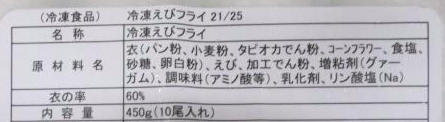 (冷凍食品) 冷凍えびフライ 21/25
名称 冷凍えびフライ
衣(パン粉、小麦粉、タピオカでん粉、コーンフラワー、食塩、
原材料名 砂糖、卵白粉)、えび、加工でん粉、増粘剤(グァー
ガム)、調味料(アミノ酸等)、乳化剤、リン酸塩(Na)
衣の率 60%
内容量 450g(10尾入れ)